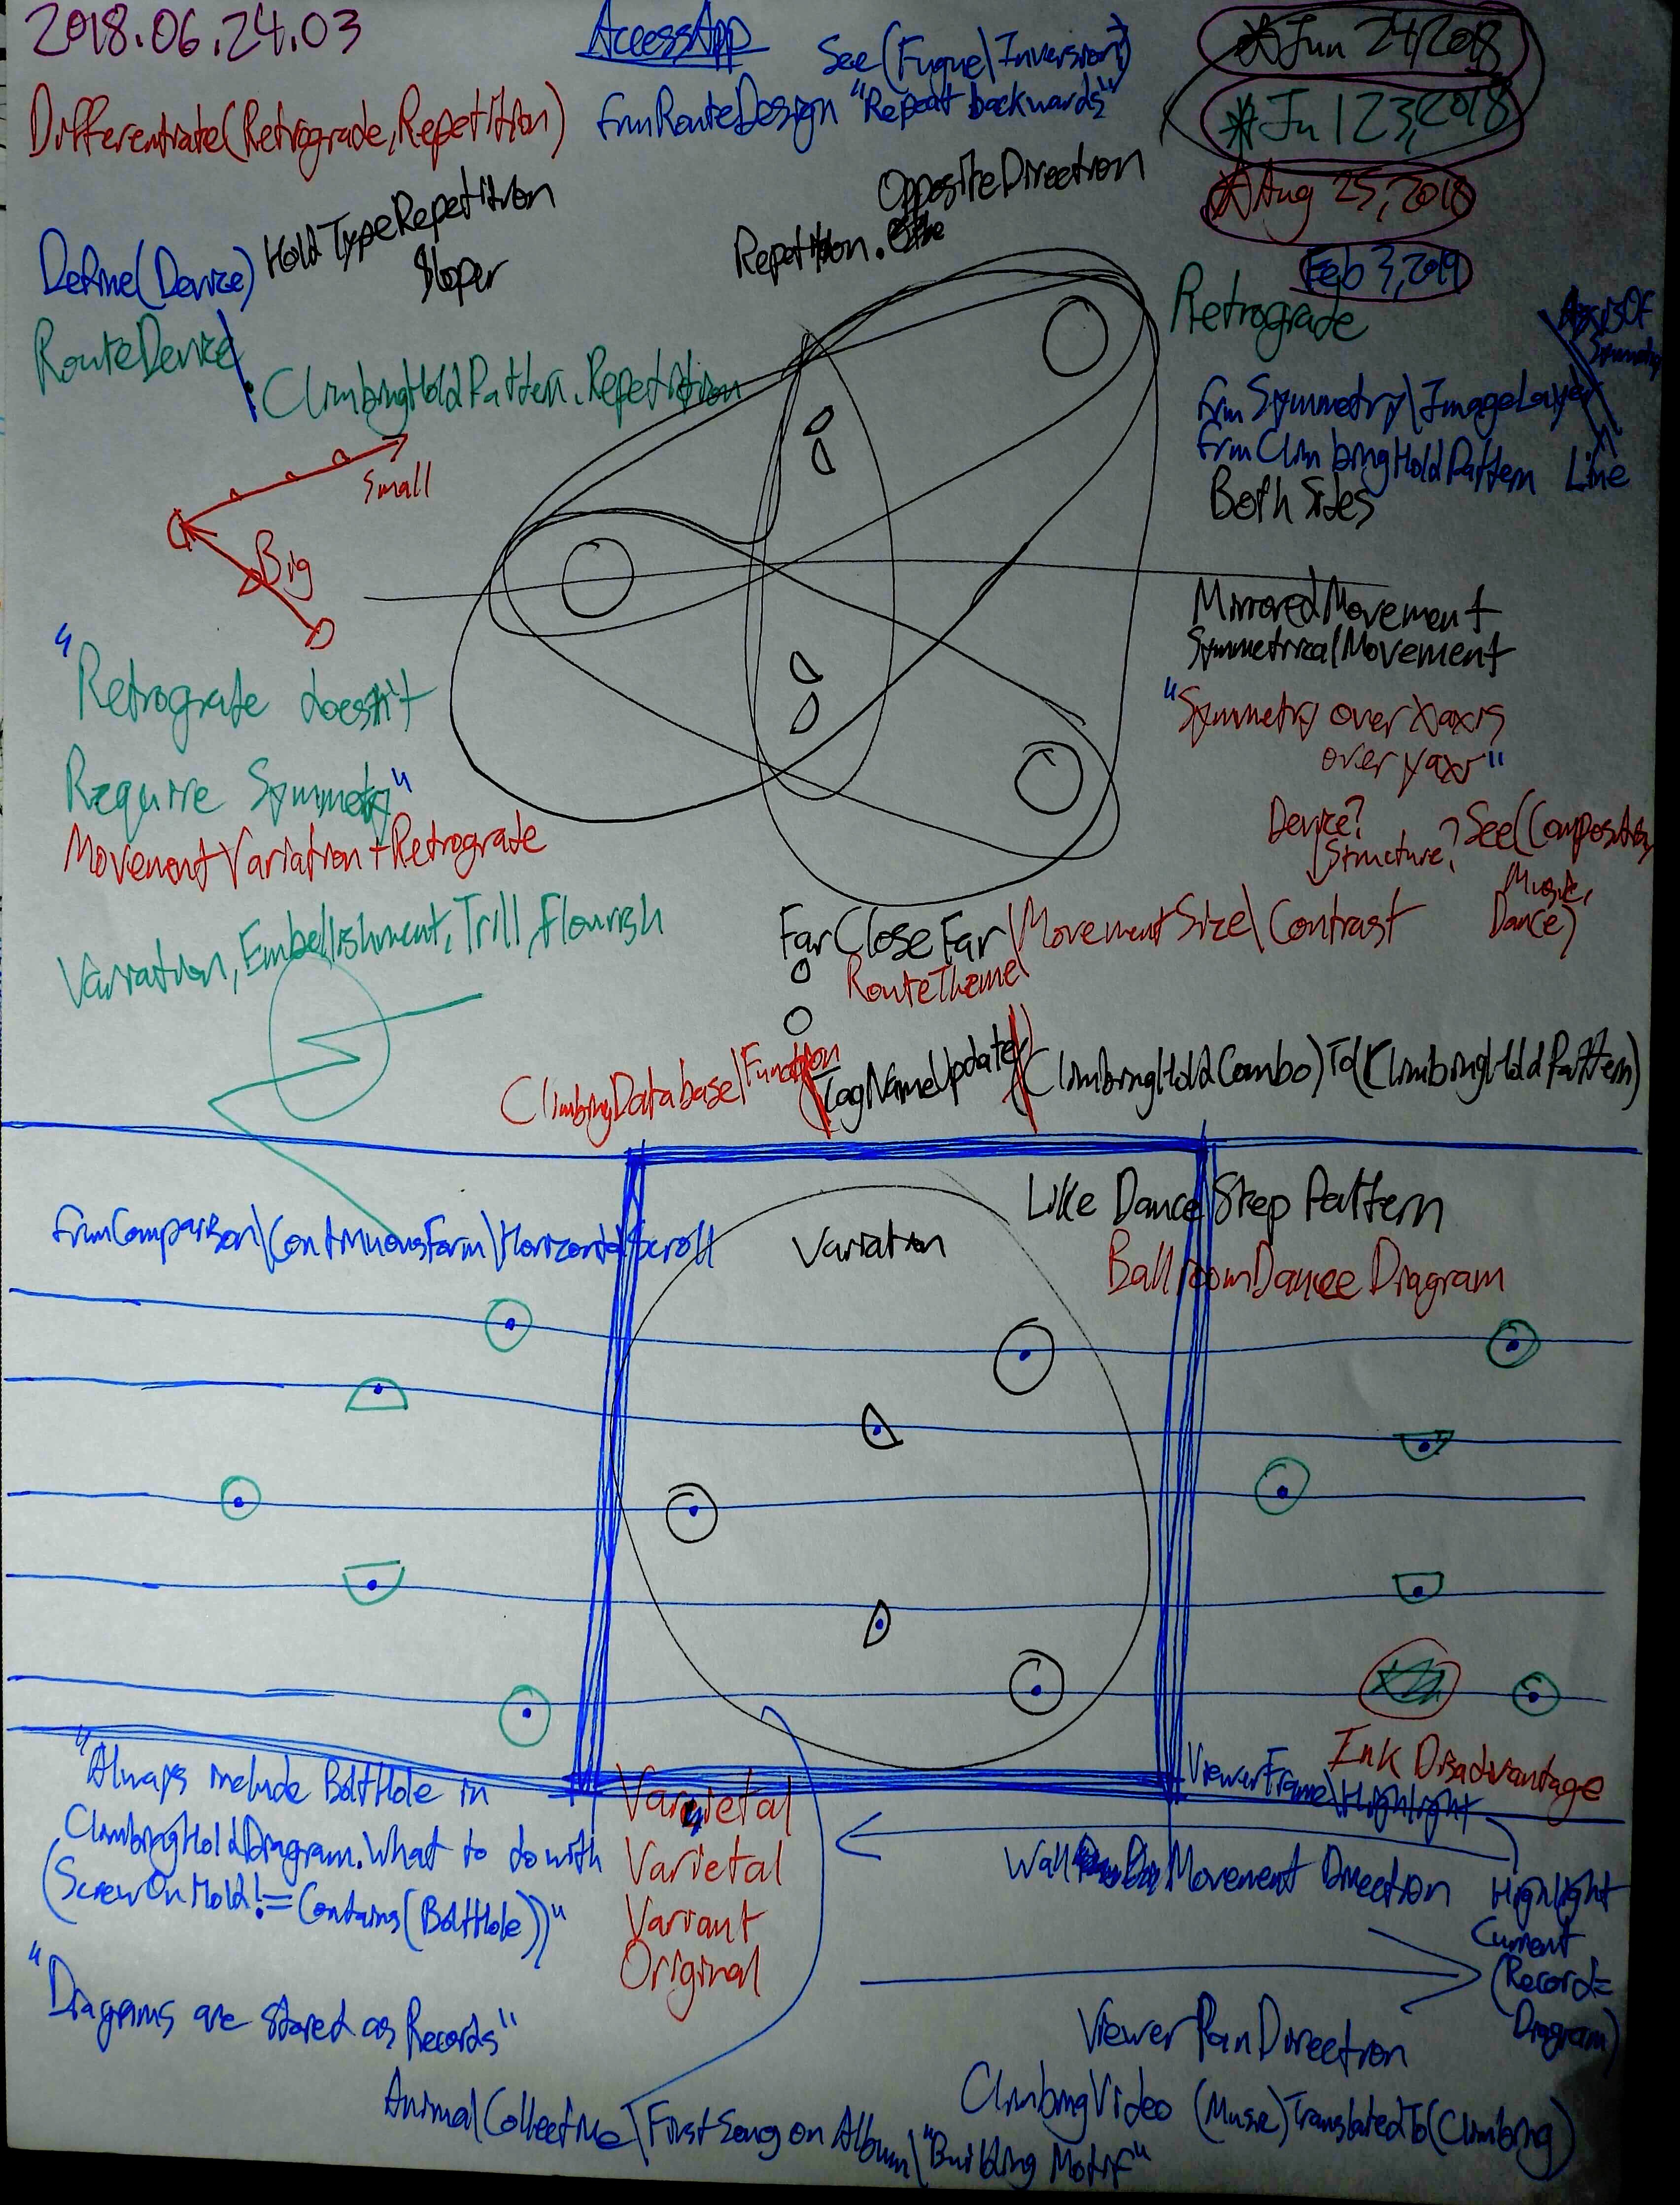 2018.06.24.03
AccessApp
See(Fugue\Inversion)
frmRouteDesign "Repeat backwards"
*Jun 24,2018
*Jul 23,2018
*Aug 25,2018
Feb 3,2019
Differentiate(Retrograde,Repetition)
HoldTypeRepetition
Sloper
OppositeDirection
Repetition.
Define(Device)
RouteDevice\
.ClimbingHoldPattern.Repetition
Small
Big
Retrograde
AxisOf
Symmetry
frmSymmetry\ImageLayer
frmClimbingHoldPattern
Line
Both Sides
MirroredMovement
SymmetricalMovement
"Symmetry over Xaxis
over yaxis"
"Retrograde doesn't
Require Symmetry"
MovementVariation+Retrograde
Device?
Structure?
See(Composition,
Music,
Dance)
Variation, Embellishment, Trill, Flourish
FarCloseFar\MovementSize\Contrast
RouteTheme
ClimbingDatabase\Function
\TagNameUpdate\(ClimbingHoldCombo)To(ClimbingHoldPattern)
frmComparison\ContinuousForm\HorizontalScroll
Variation
Like Dance\Step Pattern
BallroomDance Diagram
Ink Disadvantage
ViewerFrame\Highlight
"Always include BoltHole in
ClimbingHoldDiagram. What to do with
(ScrewOnHold!=Contains(BoltHole))"
Varietal
Varietal
Variant
Original
Wall MovementDirection
Highlight
Current
(Record=
Diagram)
"Diagrams are stored as Records"
ViewerPanDirection
AnimalCollective\FirstSong on Album\"Building Motif"
ClimbingVideo (Music)TranslatedTo(Climbing)